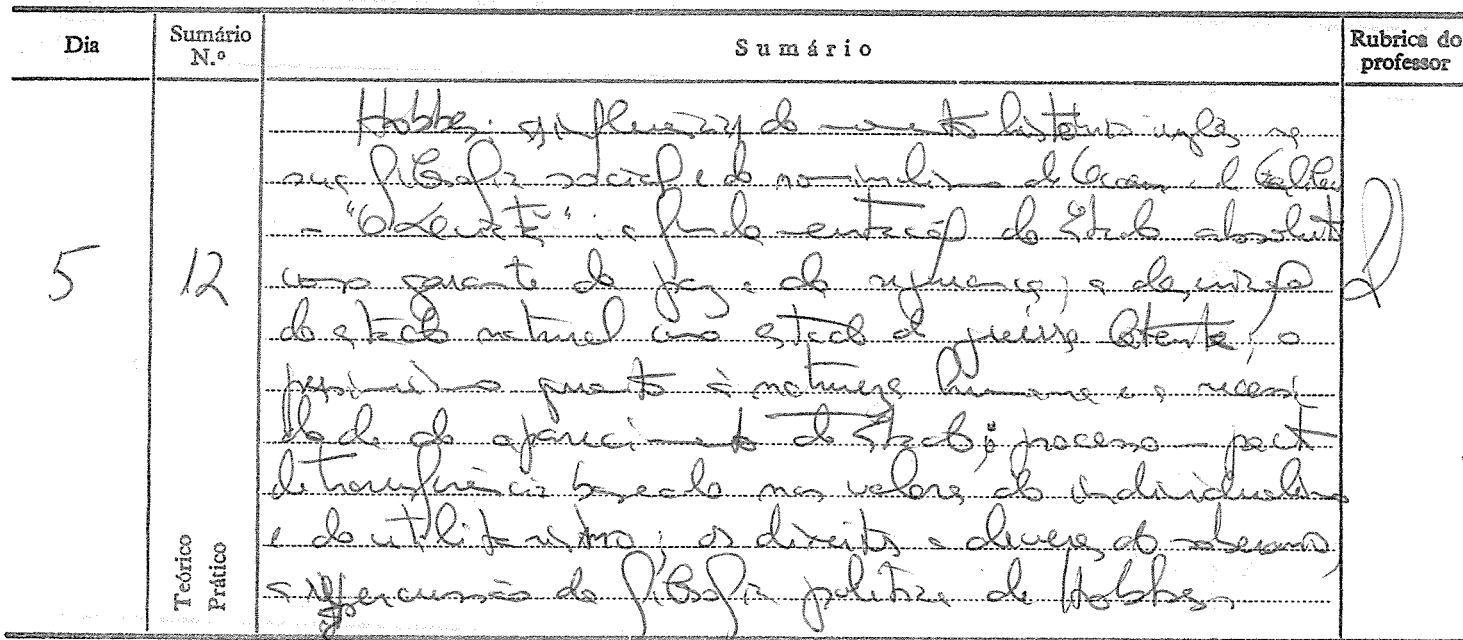 Dia
Sumário N.º
Sumário
Rubrica do professor
5
12
Teórico
Prático
Hobbes: influência do momento histórico inglês na
sua filosofia social e do nominalismo de Ocam e de Galileu
- "O Leviatã": a fundamentação do Estado absoluto
como garante da paz e da segurança; a
do estado natural como estado de guerra latente; o
pessimismo quanto à natureza humana e a necessi
dade do aparecimento do Estado; processo - pacto
de transferência baseado nos valores do individualismo
e do utilitarismo; os direitos e deveres do soberano;
a repercussão da filosofia política de Hobbes